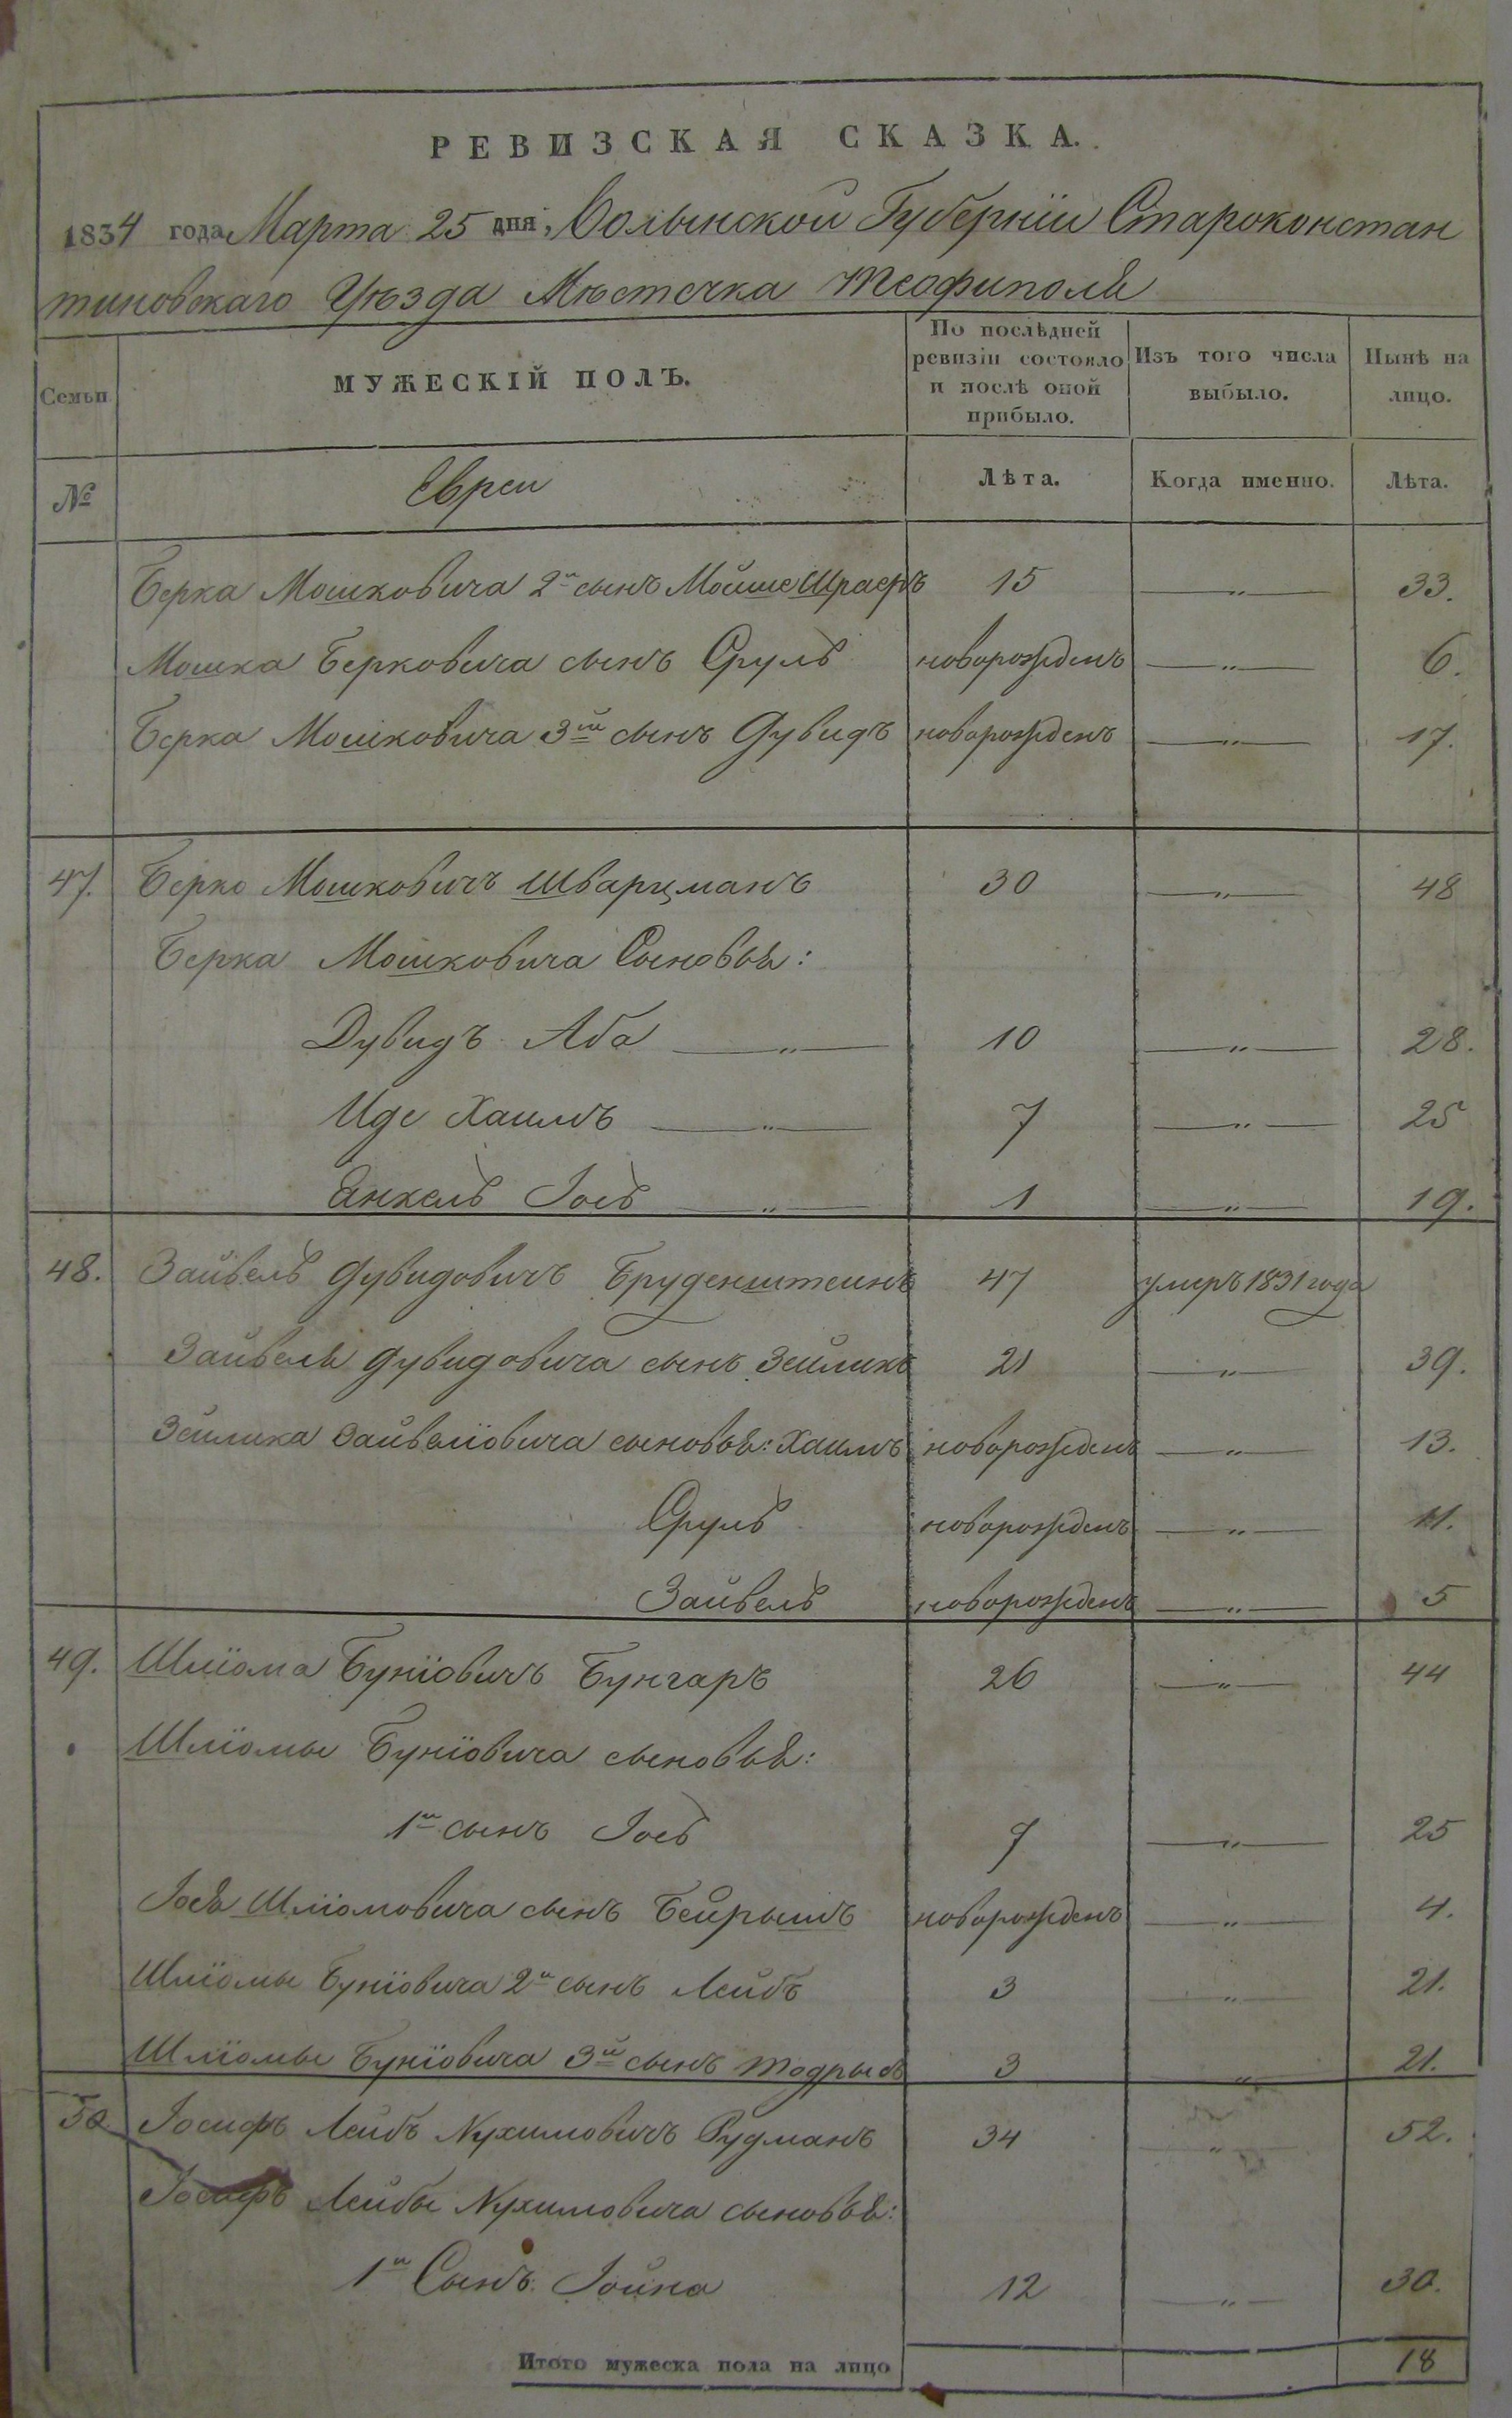 РЕВИЗСКАЯ СКАЗКА.
1834 года Марта 25 дня, Волынской Губерніи Староконстан
тиновскаго Уѣзда Мѣстечка Теофиполя
Семьи
МУЖЕСКІЙ ПОЛЪ.
По послѣдней ревизіи состояло и послѣ оной прибыло.
Изъ того числа выбыло.
Нынѣ на лицо.
№
Евреи
Лѣта.
Когда именно.
Лѣта.
Берка Мошковича 2й сынъ Мойше 15 —„— 33.
Мошка Берковича сынъ Сруль новорожденъ —„— 6.
Берка Мошковича 3й сынъ Дувидъ новорожденъ —„— 17.
47. Берко Мошковичъ Шварцманъ 30 —„— 48
Берка Мошковича Сыновья:
Дувидъ Аба —„— 10 —„— 28.
Иде Хаимъ —„— 7 —„— 25
Янкель Іось —„— 1 —„— 19.
48. Зайвель Дувидовичъ Бруденштеинъ 47 умеръ 1831 года
Зайвеля Дувидовича сынъ Зейликъ 21 —„— 39.
Зейлика Зайвелiовича сыновья: Хаимъ новорожденъ —„— 13.
Сруль новорожденъ —„— 11.
Зайвель новорожденъ —„— 5
49. Шлiома Бунiовичъ Бунгаръ 26 —„— 44
Шлiомы Бунiовича сыновья:
1й сынъ Іось 7 —„— 25
Іося Шлiомовича сынъ Бейрышъ новорожденъ —„— 4.
Шлiомы Бунiовича 2й сынъ Лейбъ 3 —„— 21.
Шлiомы Бунiовича 3й сынъ Тодрысь 3 „ 21.
50. Іосифъ Лейбъ Нухимовичъ Рудманъ 34 —„— 52.
Іосифъ Лейбы Нухимовича сыновья:
1й Сынъ: Іойна 12 —„— 30.
Итого мужеска пола на лицо 18